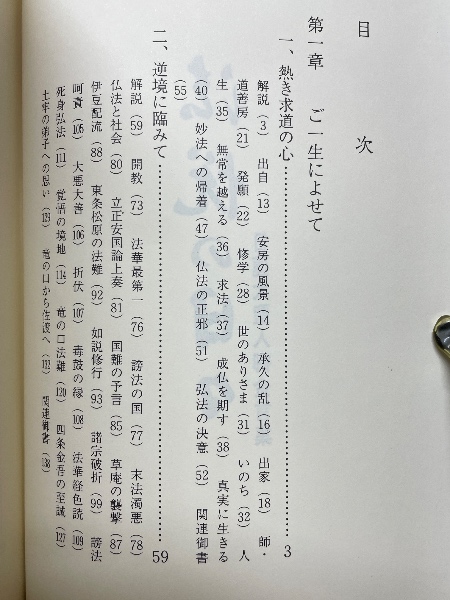 目次
第一章　ご一生によせて
一、熱き求道の心……………………………………3
解説（3）　出自（13）　安房の風景（14）　承久の乱（16）　出家（18）　師・
道善房（21）　発願（22）　修学（28）　世のありさま（31）　いのち（32）　人
生（35）　無常を越える（36）　求法（37）　成仏を期す（38）　真実に生きる
（40）　妙法への帰着（47）　仏法の正邪（51）　弘法の決意（52）　関連御書
（55）
二、逆境に臨みて……………………………………59
解説（59）　開教（73）　法華最第一（76）　謗法の国（77）　末法濁悪（78）
仏法と社会（80）　立正安国論上奏（81）　国難の予言（85）　草庵の襲撃（87）
伊豆配流（88）　東条松原の法難（92）　如説修行（93）　諸宗破折（99）　謗法
呵責（105）　大悪大善（106）　折伏（107）　毒鼓の縁（108）　法華経色読（109）
死身弘法（111）　覚悟の境地（114）　竜の口法難（120）　四条金吾の至誠（127）
土牢の弟子への思い（129）　竜の口から佐渡へ（132）　関連御書（138）